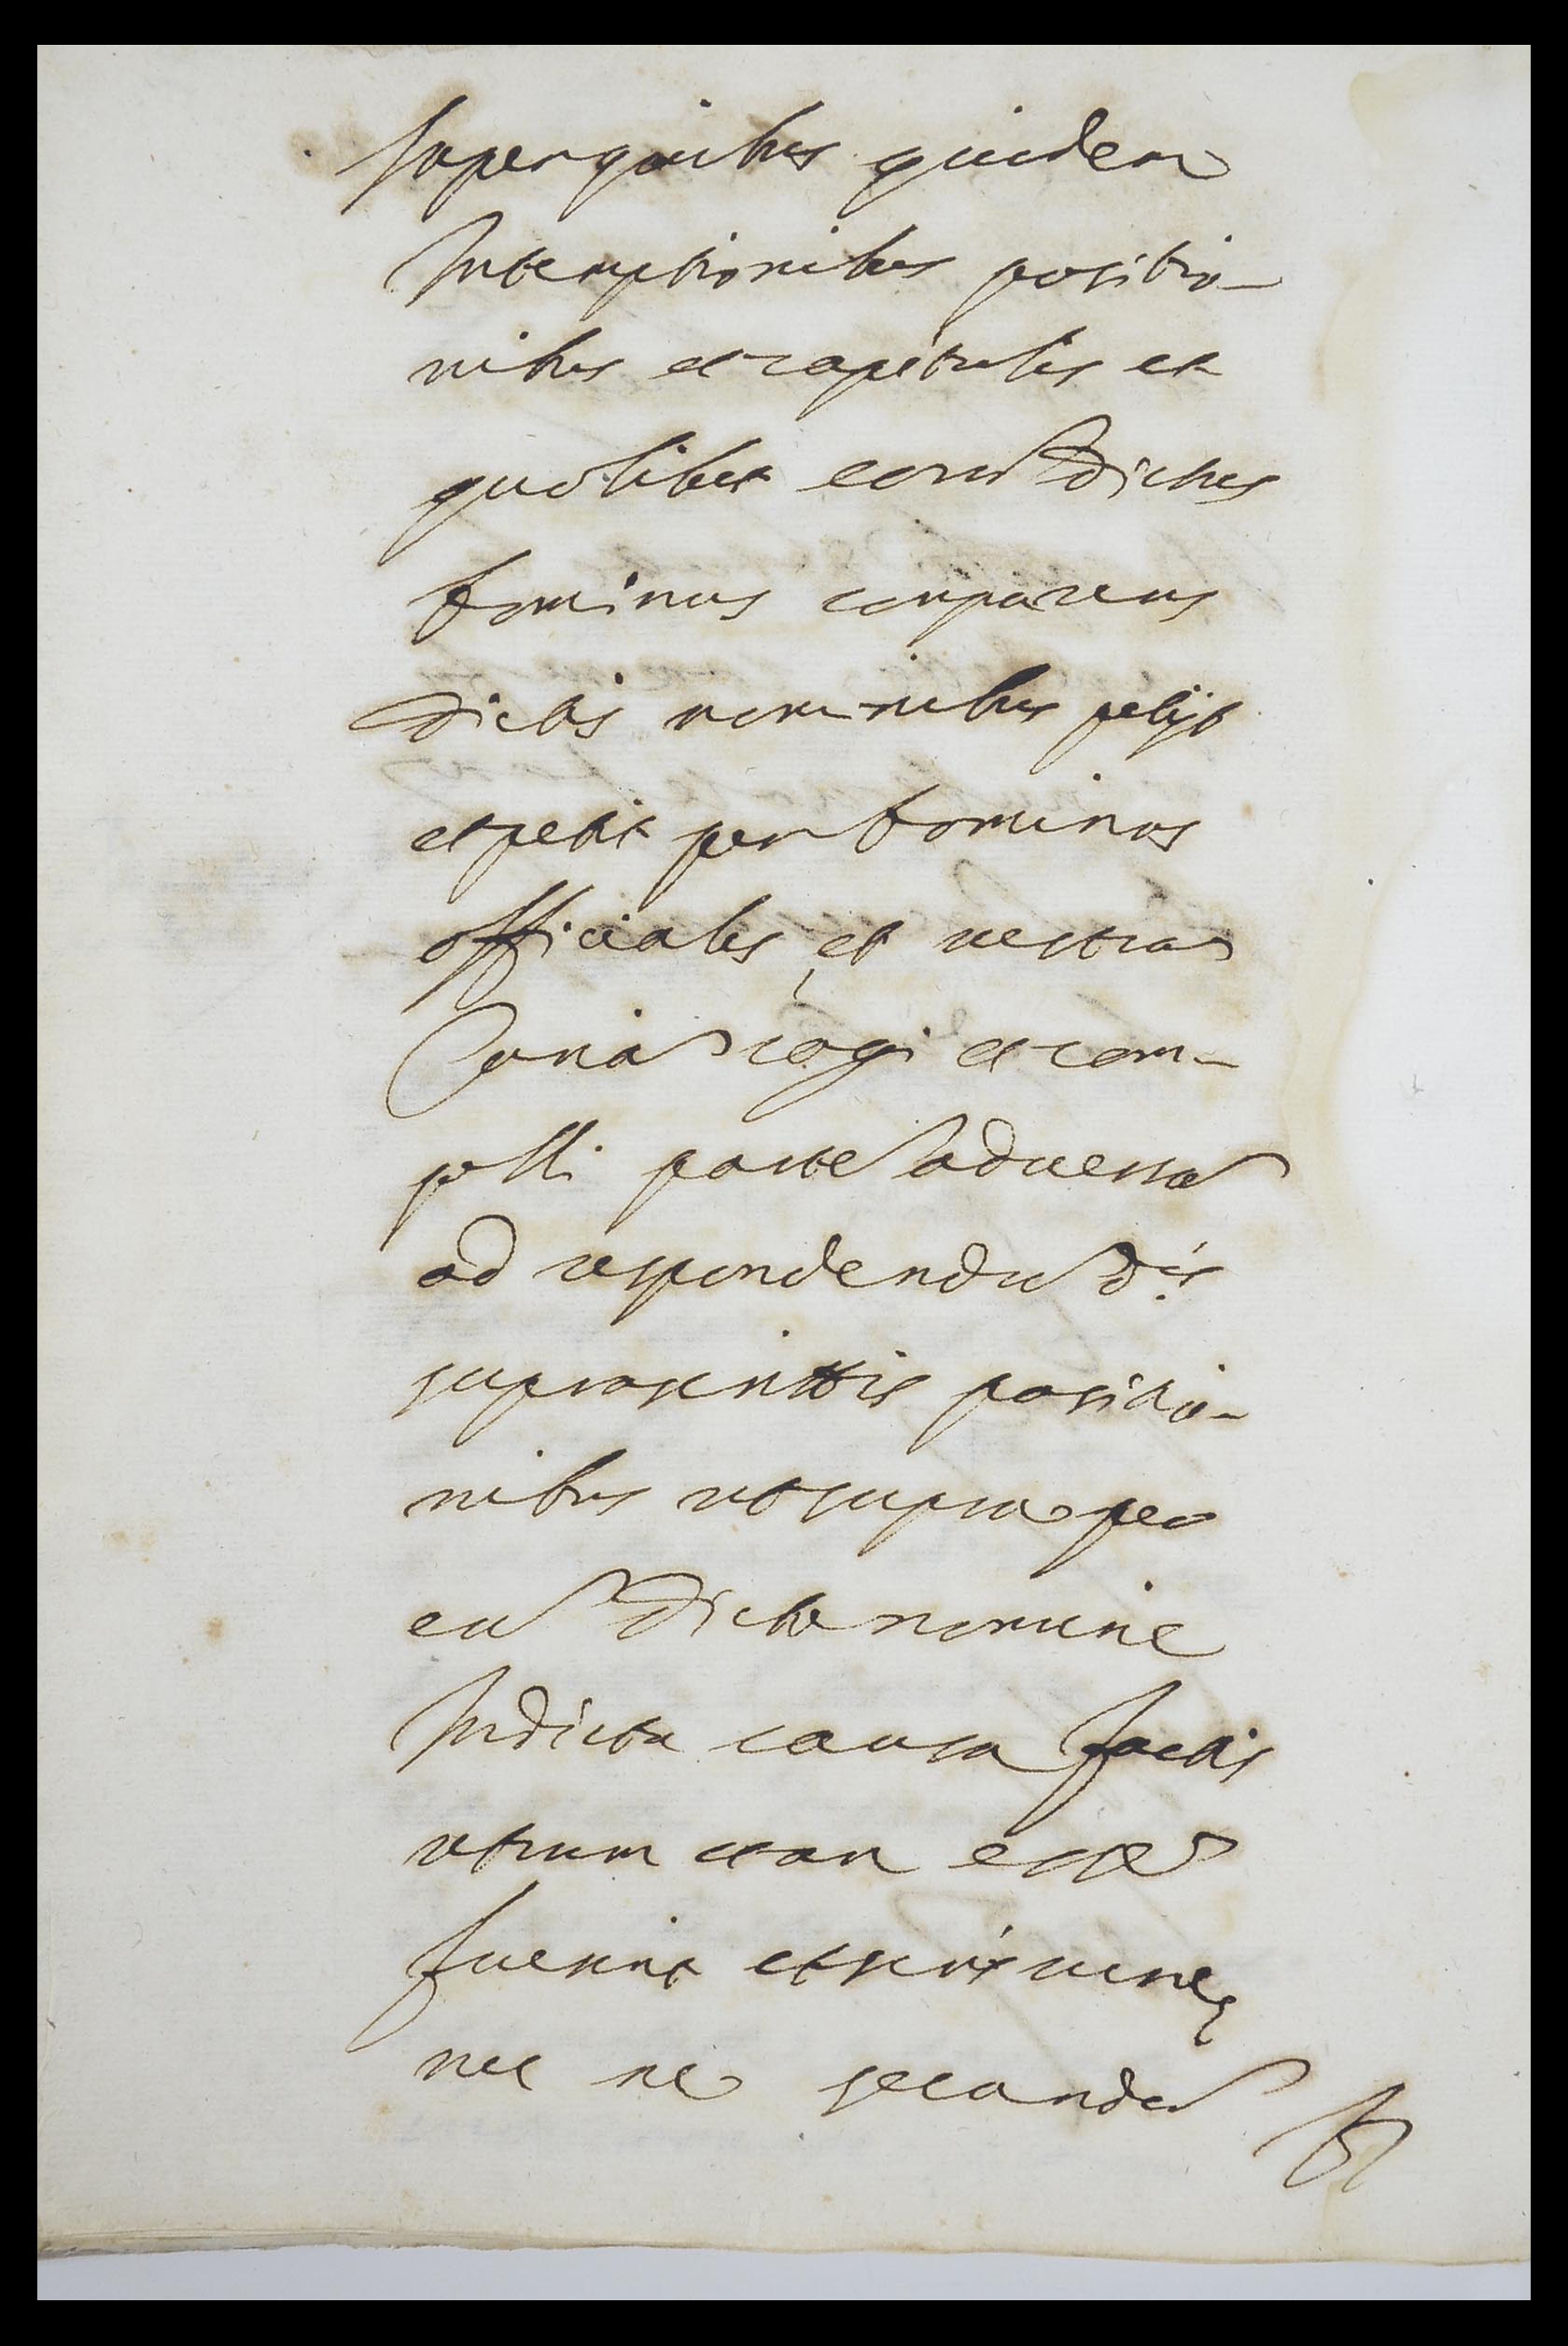 super quibus quidem
Intemptionibus positio-
nibus et capitulis et
quolibet eoru dictus
dominus comparens
dictis nominibus petijt
et petit per dominos
officiales et vestra
Curia cogi et com-
pelli parte adversa
ad respondendu dis
suprascrittis positio-
nibus ut supra per
eu dicto nomine
In dicta causa factis
utrum
fuerint et sint vere
nec ne secundu